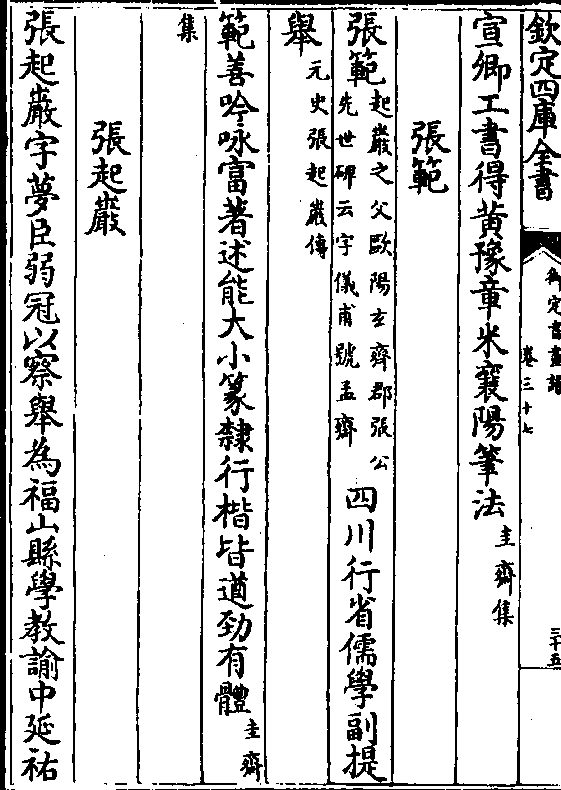 欽定四庫全書
御定書畫譜
卷三十七
三十五
宣卿工書得黄豫章米襄陽筆法圭齋集
張範
張範起巖之父歐陽玄齊郡張公先世碑云字儀甫號孟齋四川行省儒學副提
舉元史張起巖傳
範善吟咏富著述能大小篆隸行楷皆遒勁有體圭齋
集
張起巖
張起巖字夢臣弱冠以察舉為福山縣學教諭中延祐